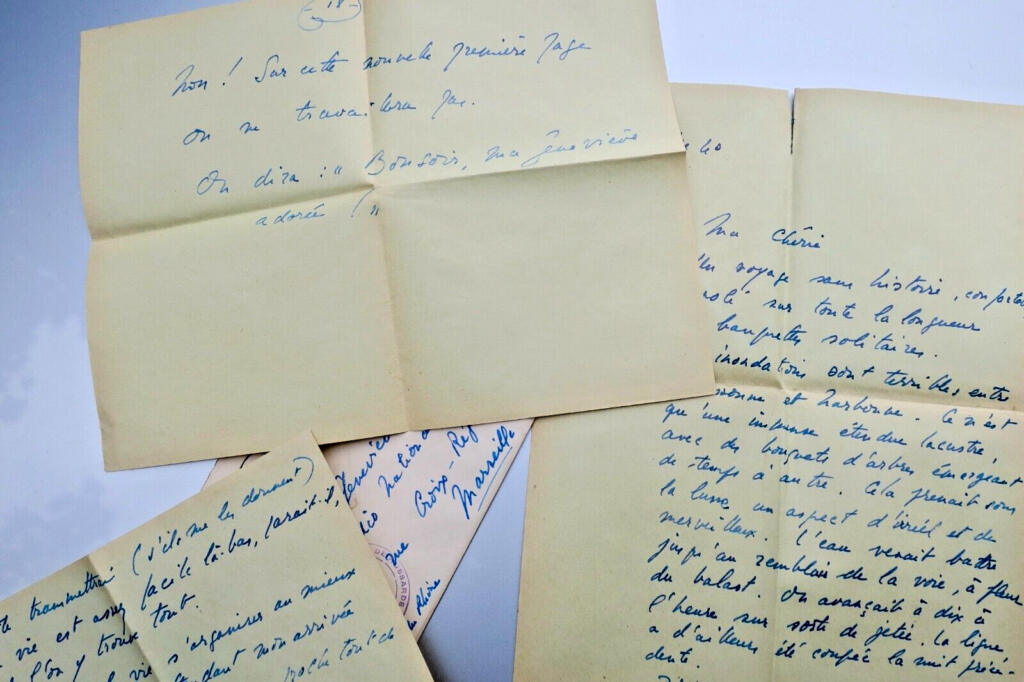 - 18 -
Non ! Sur cette nouvelle première page
on ne travaillera pas.
On dira : " Bonsoir, ma Geneviève
adorée ! "
Ma Chérie
Un voyage sans histoire, confortable
sur toute la longueur
banquettes solitaires.
inondations sont terribles entre
et Narbonne. Ce n'est
qu'une immense étendue lacustre,
avec des bouquets d'arbres émergeant
de temps à autre. Cela prenait sous
la lune un aspect d'irréel et de
merveilleux. L'eau venait battre
jusqu'au remblais de la voie, à fleur
du balast. On avançait à dix à
l'heure sur sorte de jetée. La ligne
a d'ailleurs été coupée la nuit précé-
dente.
Geneviève
nationa
Croix-Rég
Marseille
rue
Rhône
transmettrai (s'ils me les donnent)
vie est assez facile là-bas, paraît-il,
l'on y trouve tout.
s'organiser au mieux
dant mon arrivée
tout de